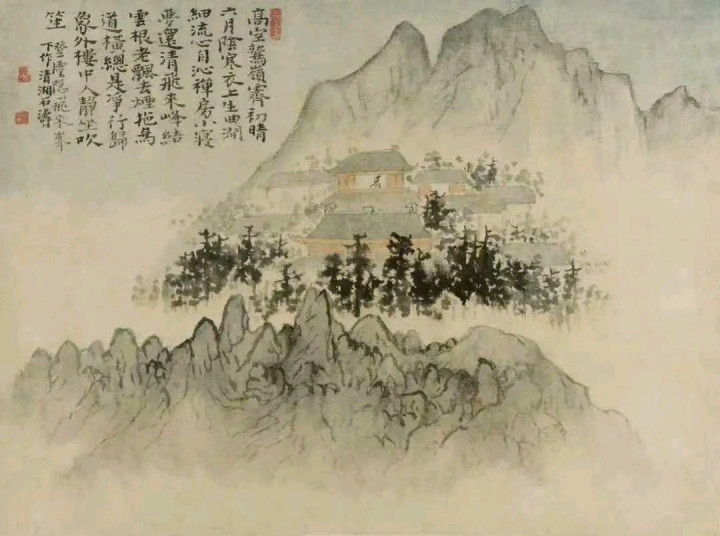 高空鷲嶺霽初晴
六月陰寒衣上生曲澗
細流心自沁禪房小寢
夢還清飛來峰結
雲根老飄去煙拖馬
道橫總是淨行歸
象外樓中人靜坐吹
笙
登靈隱飛來峯
下作清湘石濤